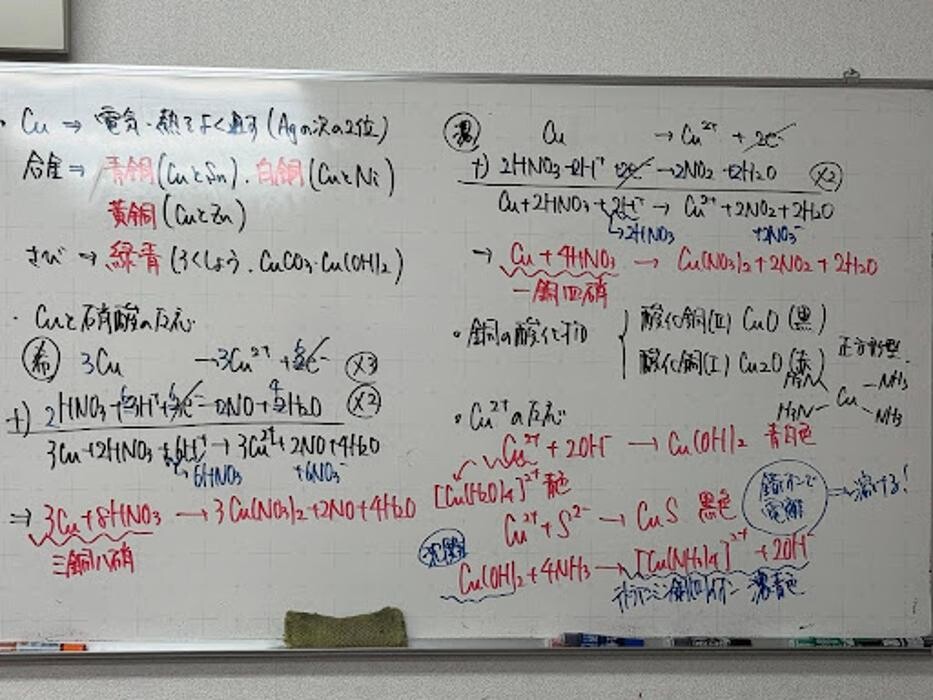 ・Cu ⇒ 電気・熱をよく通す(Agの次の2位)
合金 ⇒ 青銅(CuとSn). 白銅(CuとNi)
黄銅(CuとZn)
さび → 緑青(ろくしょう. CuCO3・Cu(OH)2)
・Cuと硝酸の反応
希 3Cu → 3Cu2+ + 6e- ×3
+) 2HNO3 + 6H+ + 6e- → 2NO + 4H2O ×2
3Cu + 2HNO3 + 6H+ → 3Cu2+ + 2NO + 4H2O
6HNO3 +6NO3-
⇒ 3Cu + 8HNO3 → 3Cu(NO3)2 + 2NO + 4H2O
三銅八硝
濃 Cu → Cu2+ + 2e-
+) 2HNO3 + 2H+ + 2e- → 2NO2 + 2H2O ×2
Cu + 2HNO3 + 2H+ → Cu2+ + 2NO2 + 2H2O
2HNO3 +2NO3-
→ Cu + 4HNO3 → Cu(NO3)2 + 2NO2 + 2H2O
一銅四硝
。銅の酸化
酸化銅(II) CuO (黒)
酸化銅(I) Cu2O (赤)
正方形型
H3N Cu NH3
H3N NH3
。Cu2+の反応
Cu2+ + 2OH- → Cu(OH)2 青白色
[Cu(H2O)4]2+ 青色
Cu2+ + S2- → CuS 黒色
錯イオンで電離 ⇒ 溶ける!
Cu(OH)2 + 4NH3 → [Cu(NH3)4]2+ + 2OH-
テトラアンミン銅(II)イオン 濃青色